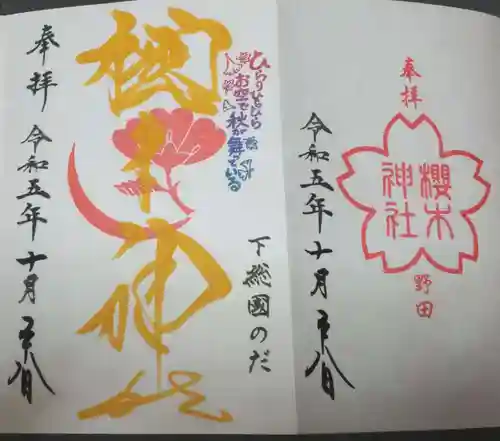 奉拝
櫻木
神社
野田
令和五年十月二十八日
下総國のだ
ひらりひらひら
お空で秋が舞っている
櫻木神社
奉拝 令和五年十月二十八日